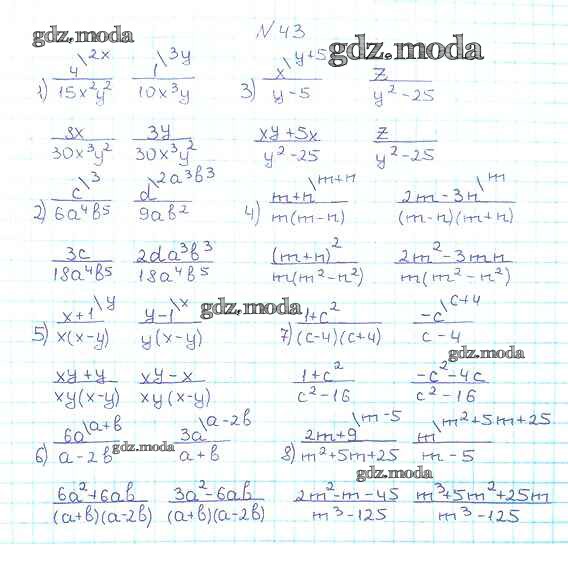 №43
gdz.moda
gdz.moda
1) 4\2x / 15x²y²   1\3y / 10x³y   3) x\y+5 / y-5   z / y²-25
8x / 30x³y²   3y / 30x³y²   xy+5x / y²-25   z / y²-25
2) c\3 / 6a⁴b⁵   d\2a³b³ / 9ab²   4) m+n\m+n / m(m-n)   2m-3n\m / (m-n)(m+n)
3c / 18a⁴b⁵   2da³b³ / 18a⁴b⁵   (m+n)² / m(m²-n²)   2m²-3mn / m(m²-n²)
gdz.moda
5) x+1\y / x(x-y)   y-1\x / y(x-y)   7) 1+c² / (c-4)(c+4)   -c\c+4 / c-4
gdz.moda
xy+y / xy(x-y)   xy-x / xy(x-y)   1+c² / c²-16   -c²-4c / c²-16
6) 6a\a+b / a-2b   3a\a-2b / a+b   8) 2m+9\m-5 / m²+5m+25   m\m²+5m+25 / m-5
gdz.moda
gdz.moda
6a²+6ab / (a+b)(a-2b)   3a²-6ab / (a+b)(a-2b)   2m²-m-45 / m³-125   m³+5m²+25m / m³-125